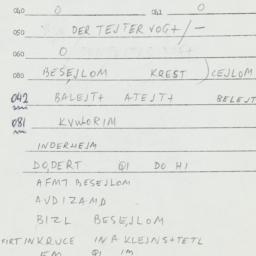 040 0 041 0
050 DER TEJTER VOGT/—
060 0
080 BESEJLOM KREST ) CEJLOM
042 BALEJT+ ATEJT+ BELEJT
081 KVWORIM
INDERHEJM
DO,DERT QI DO HI
AFMT BESEJLOM
AVDIZAMD
BIZL BESEJLOM
FIRTINKRUCE IN A KLEJNS+TETL
EM QI IM